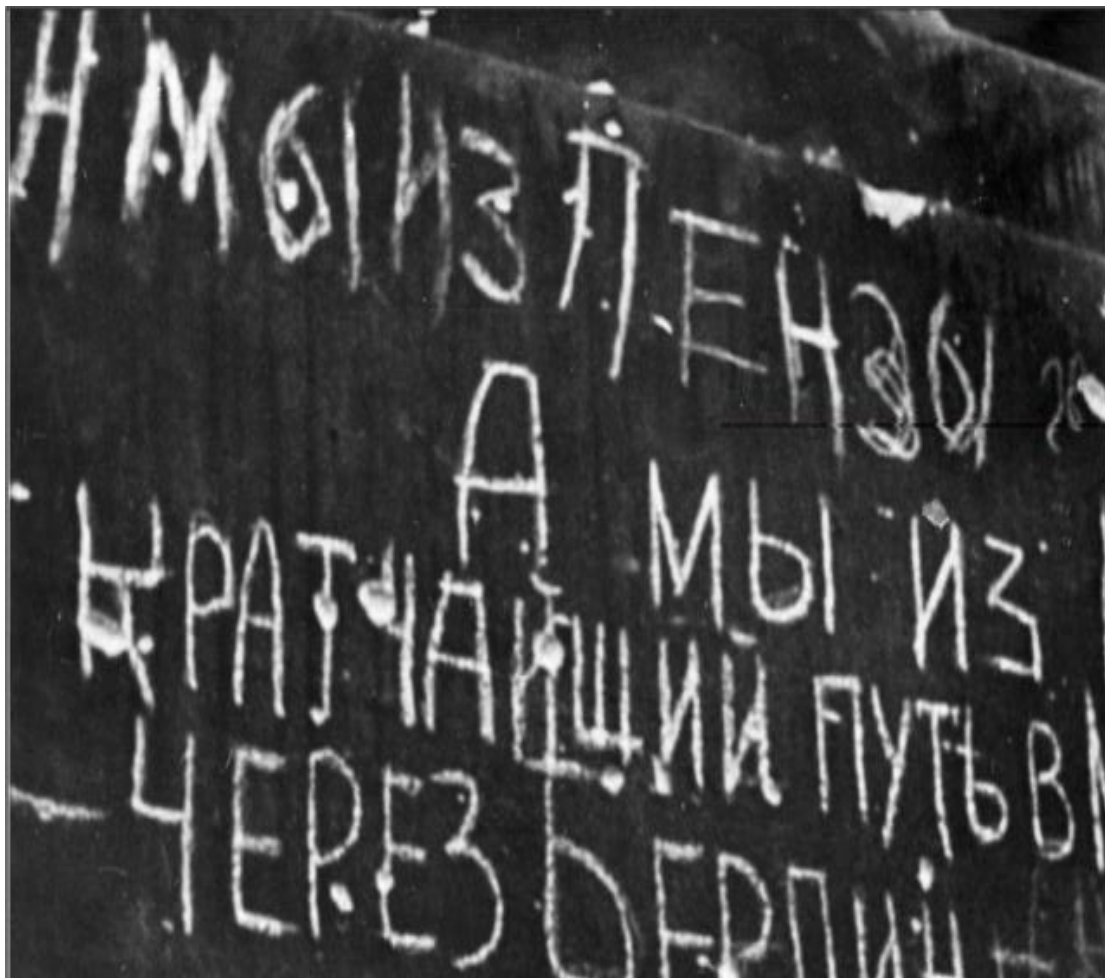 Н МЫ ИЗ ПЕНЗЫ
А МЫ ИЗ
КРАТЧАЙШИЙ ПУТЬ В М
ЧЕРЕЗ БЕРЛИН